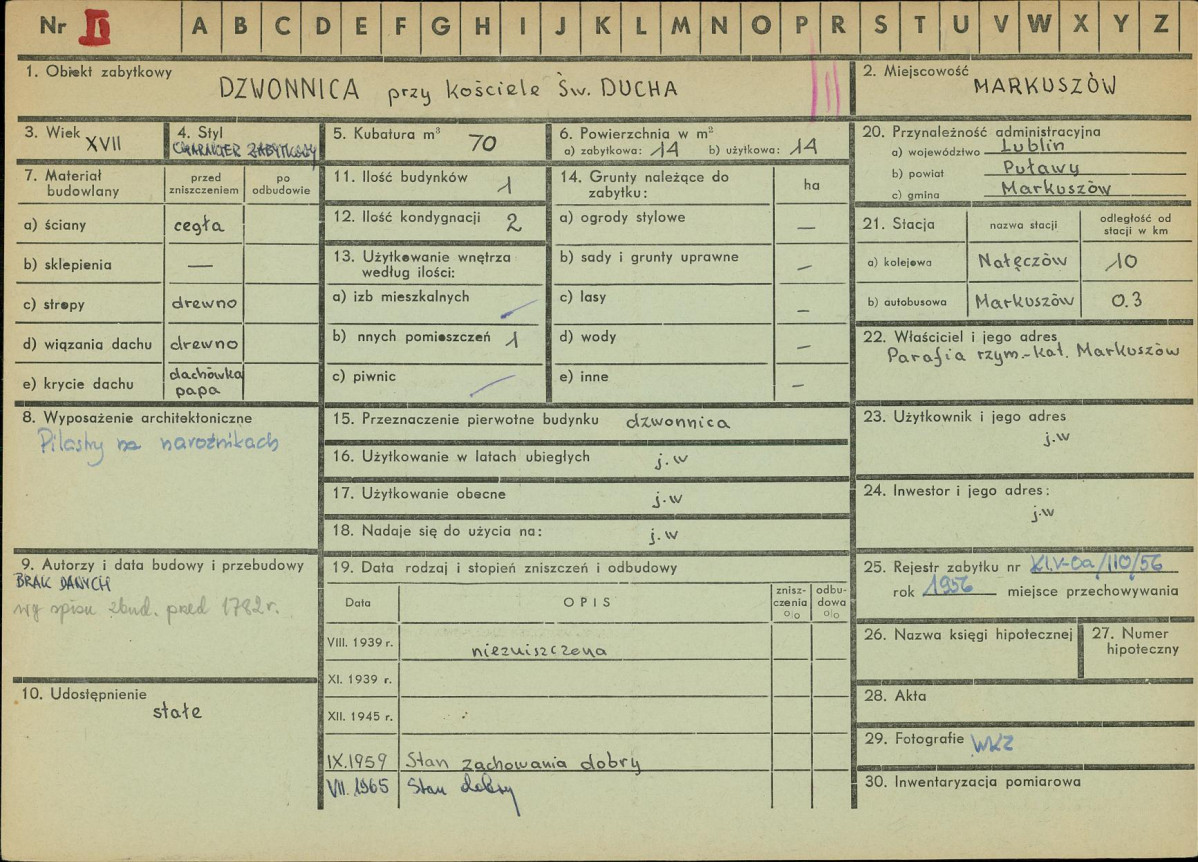 Nr II A B C D E F G H I J K L M N O P R S T U V W X Y Z
1. Obiekt zabytkowy
DZWONNICA przy kościele Św. DUCHA
2. Miejscowość
MARKUSZÓW
3. Wiek
XVII
4. Styl
CHARAKTER ZABYTKOWY
5. Kubatura m³ 70
6. Powierzchnia w m²
a) zabytkowa: 14 b) użytkowa: 14
20. Przynależność administracyjna
a) województwo Lublin
b) powiat Puławy
c) gmina Markuszów
7. Materiał budowlany
przed zniszczeniem
po odbudowie
a) ściany cegła
b) sklepienia —
c) stropy drewno
d) wiązania dachu drewno
e) krycie dachu dachówka
papa
11. Ilość budynków 1
12. Ilość kondygnacji 2
13. Użytkowanie wnętrza
według ilości:
a) izb mieszkalnych
b) nnych pomieszczeń 1
c) piwnic
14. Grunty należące do
zabytku:
ha
a) ogrody stylowe —
b) sady i grunty uprawne —
c) lasy —
d) wody —
e) inne —
21. Stacja
nazwa stacji
odległość od
stacji w km
a) kolejowa Nałęczów 10
b) autobusowa Markuszów 0.3
22. Właściciel i jego adres
Parafia rzym.-kat. Markuszów
8. Wyposażenie architektoniczne
Pilastry na narożnikach
15. Przeznaczenie pierwotne budynku dzwonnica
16. Użytkowanie w latach ubiegłych j.w
17. Użytkowanie obecne j.w
18. Nadaje się do użycia na: j.w
23. Użytkownik i jego adres
j.w
24. Inwestor i jego adres:
j.w
9. Autorzy i data budowy i przebudowy
BRAK DANYCH
wg spisu zbud. przed 1782 r.
10. Udostępnienie
stałe
19. Data rodzaj i stopień zniszczeń i odbudowy
Data
OPIS
znisz-
czenia
%
odbu-
dowa
%
VIII. 1939 r. niezniszczona
XI. 1939 r.
XII. 1945 r.
IX.1959 Stan zachowania dobry
VII. 1965 Stan dobry
25. Rejestr zabytku nr Kl.V-0a/110/56
rok 1956 miejsce przechowywania
26. Nazwa księgi hipotecznej
27. Numer
hipoteczny
28. Akta
29. Fotografie WKZ
30. Inwentaryzacja pomiarowa